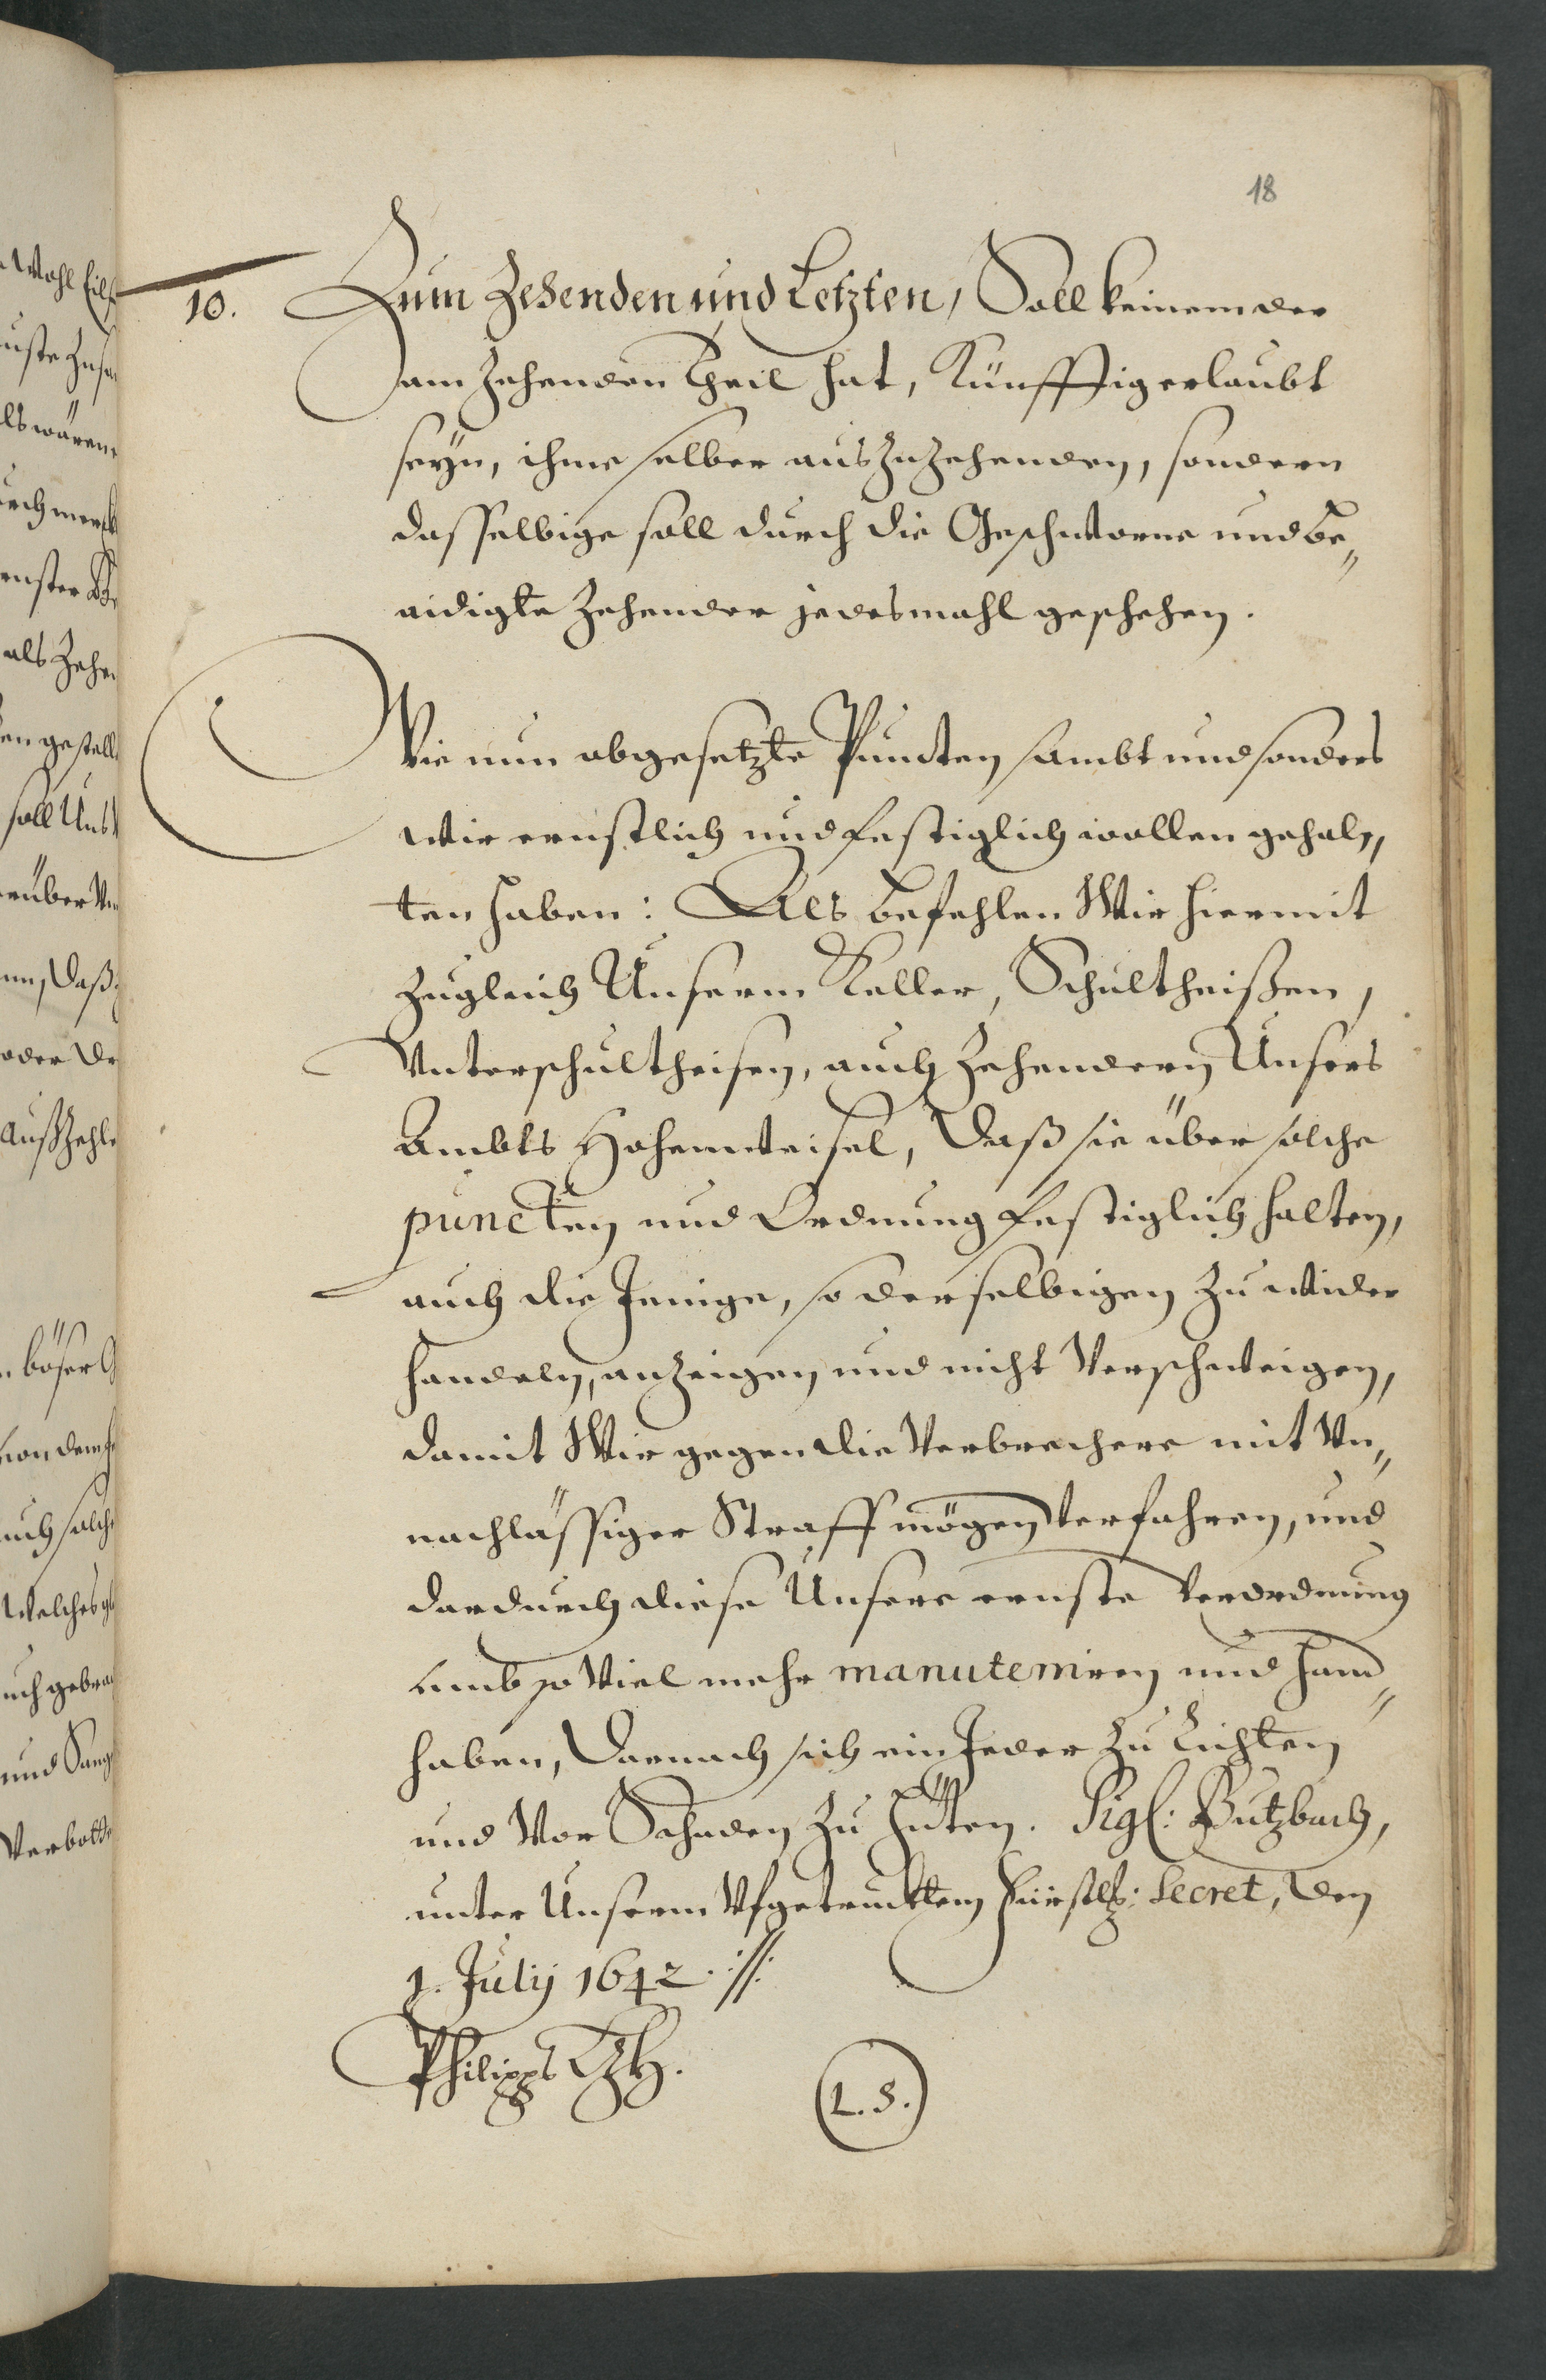 18
10. Zum Zehenden und Letzten, Soll keinem der
am Zehenden theil hat, Künfftig erlaubt
seyn, ihme selber auszuzehenden, sondern
dasselbige soll durch die Geschworne und be„
eidigte Zehender jedesmahl geschehen.
Wie nun abgesetzte Puncten sambt und sonders
wir ernstlich und festiglich wollen gehal„
ten haben: Als befehlen Wir hiermit
zugleich Unserm Keller, Schultheißen,
Unterschultheisen, auch Zehendern Unsers
Ambts Hohenweisel, daß sie über solche
puncten und Ordnung festiglich halten,
auch die Jenige, so derselbigen zu wider
handeln, anzeigen und nicht Verschweigen,
damit Wir gegen die Verbrechere mit Un„
nachlässiger Straff mögen verfahren, und
dardurch diese Unsere ernste Verordnung
umb so Viel mehr manuteniren und hand„
haben, Darnach sich ein Jeder zu Richten
und Vor Schaden zu hüten. Sigl: Butzbach,
unter Unserm Ufgetrucktem Fürstlh: Secret, den
1. Julij 1642. ://:
Philipps LZH.
(L.S.)